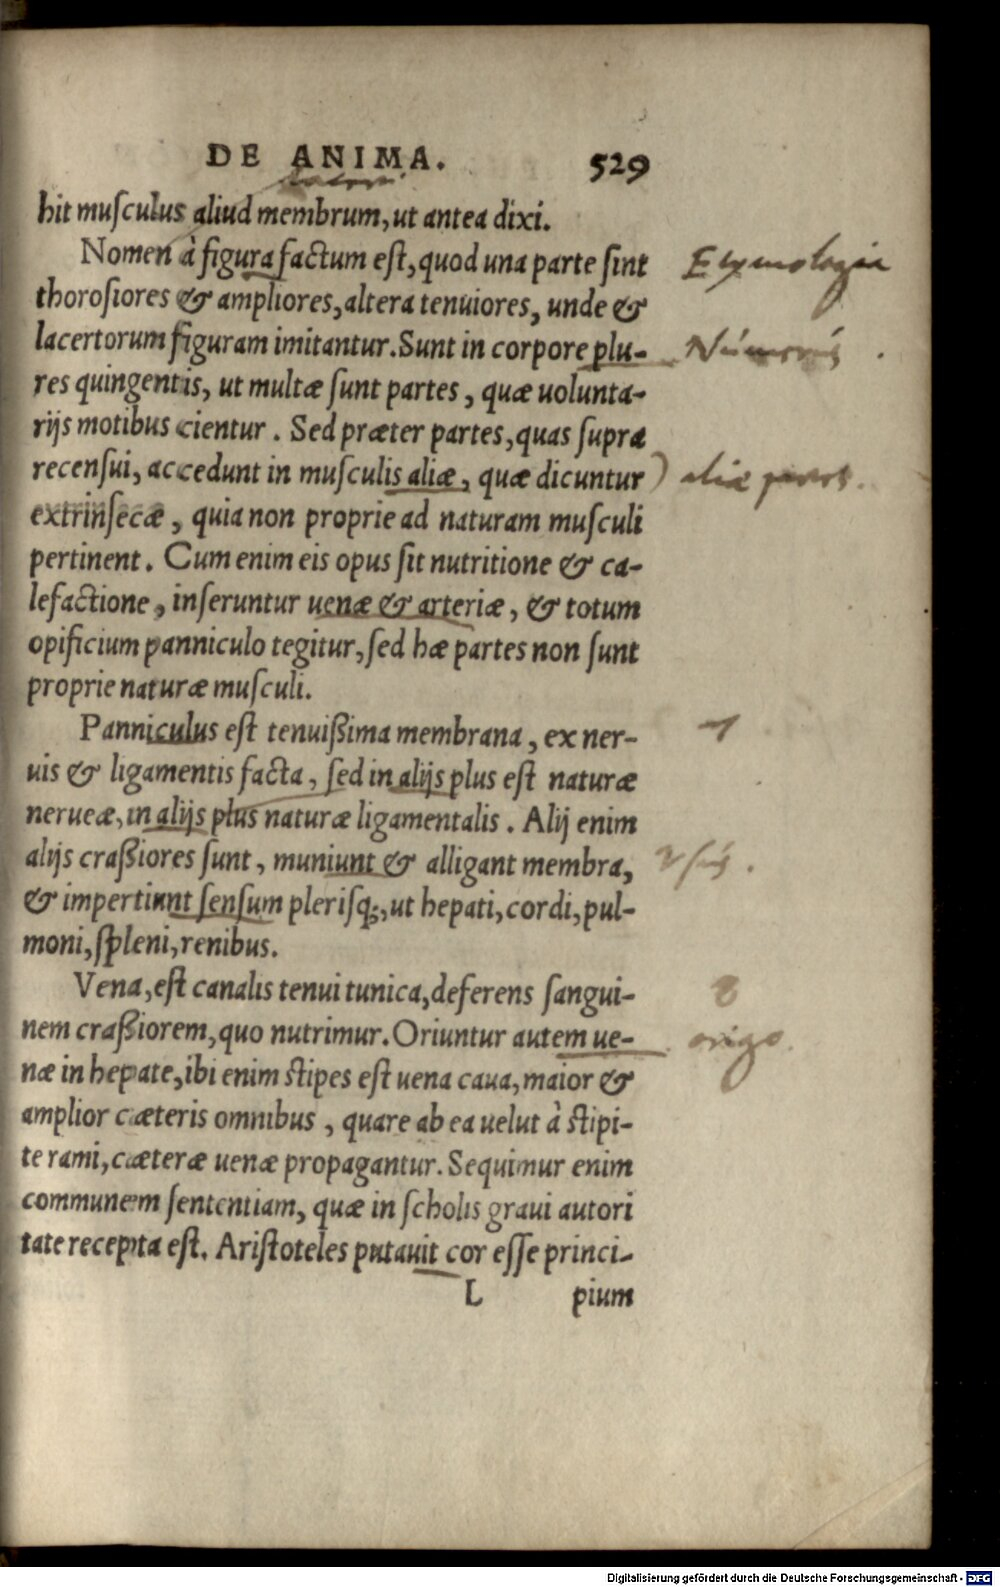 DE ANIMA. 529
hit musculus aliud membrum, ut antea dixi.
Nomen à figura factum est, quod una parte sint
Etymologia
thorosiores & ampliores, altera tenuiores, unde &
lacertorum figuram imitantur. Sunt in corpore plu-
Numerus
res quingentis, ut multæ sunt partes, quæ uolunta-
rijs motibus cientur. Sed præter partes, quas supra
recensui, accedunt in musculis aliæ, quæ dicuntur
aliæ partes.
extrinsecæ, quia non proprie ad naturam musculi
pertinent. Cum enim eis opus sit nutritione & ca-
lefactione, inseruntur uenæ & arteriæ, & totum
opificium panniculo tegitur, sed hæ partes non sunt
proprie naturæ musculi.
Panniculus est tenuißima membrana, ex ner-
1
uis & ligamentis facta, sed in alijs plus est naturæ
nerueæ, in alijs plus naturæ ligamentalis. Alij enim
alijs craßiores sunt, muniunt & alligant membra,
Vsus.
& impertiunt sensum plerisq;, ut hepati, cordi, pul-
moni, spleni, renibus.
Vena, est canalis tenui tunica, deferens sangui-
nem craßiorem, quo nutrimur. Oriuntur autem ue-
origo.
næ in hepate, ibi enim stipes est uena caua, maior &
amplior cæteris omnibus, quare ab ea uelut à stipi-
te rami, cæteræ uenæ propagantur. Sequimur enim
communem sententiam, quæ in scholis graui autori
tate recepta est. Aristoteles putauit cor esse princi-
L pium
Digitalisierung gefördert durch die Deutsche Forschungsgemeinschaft - DFG